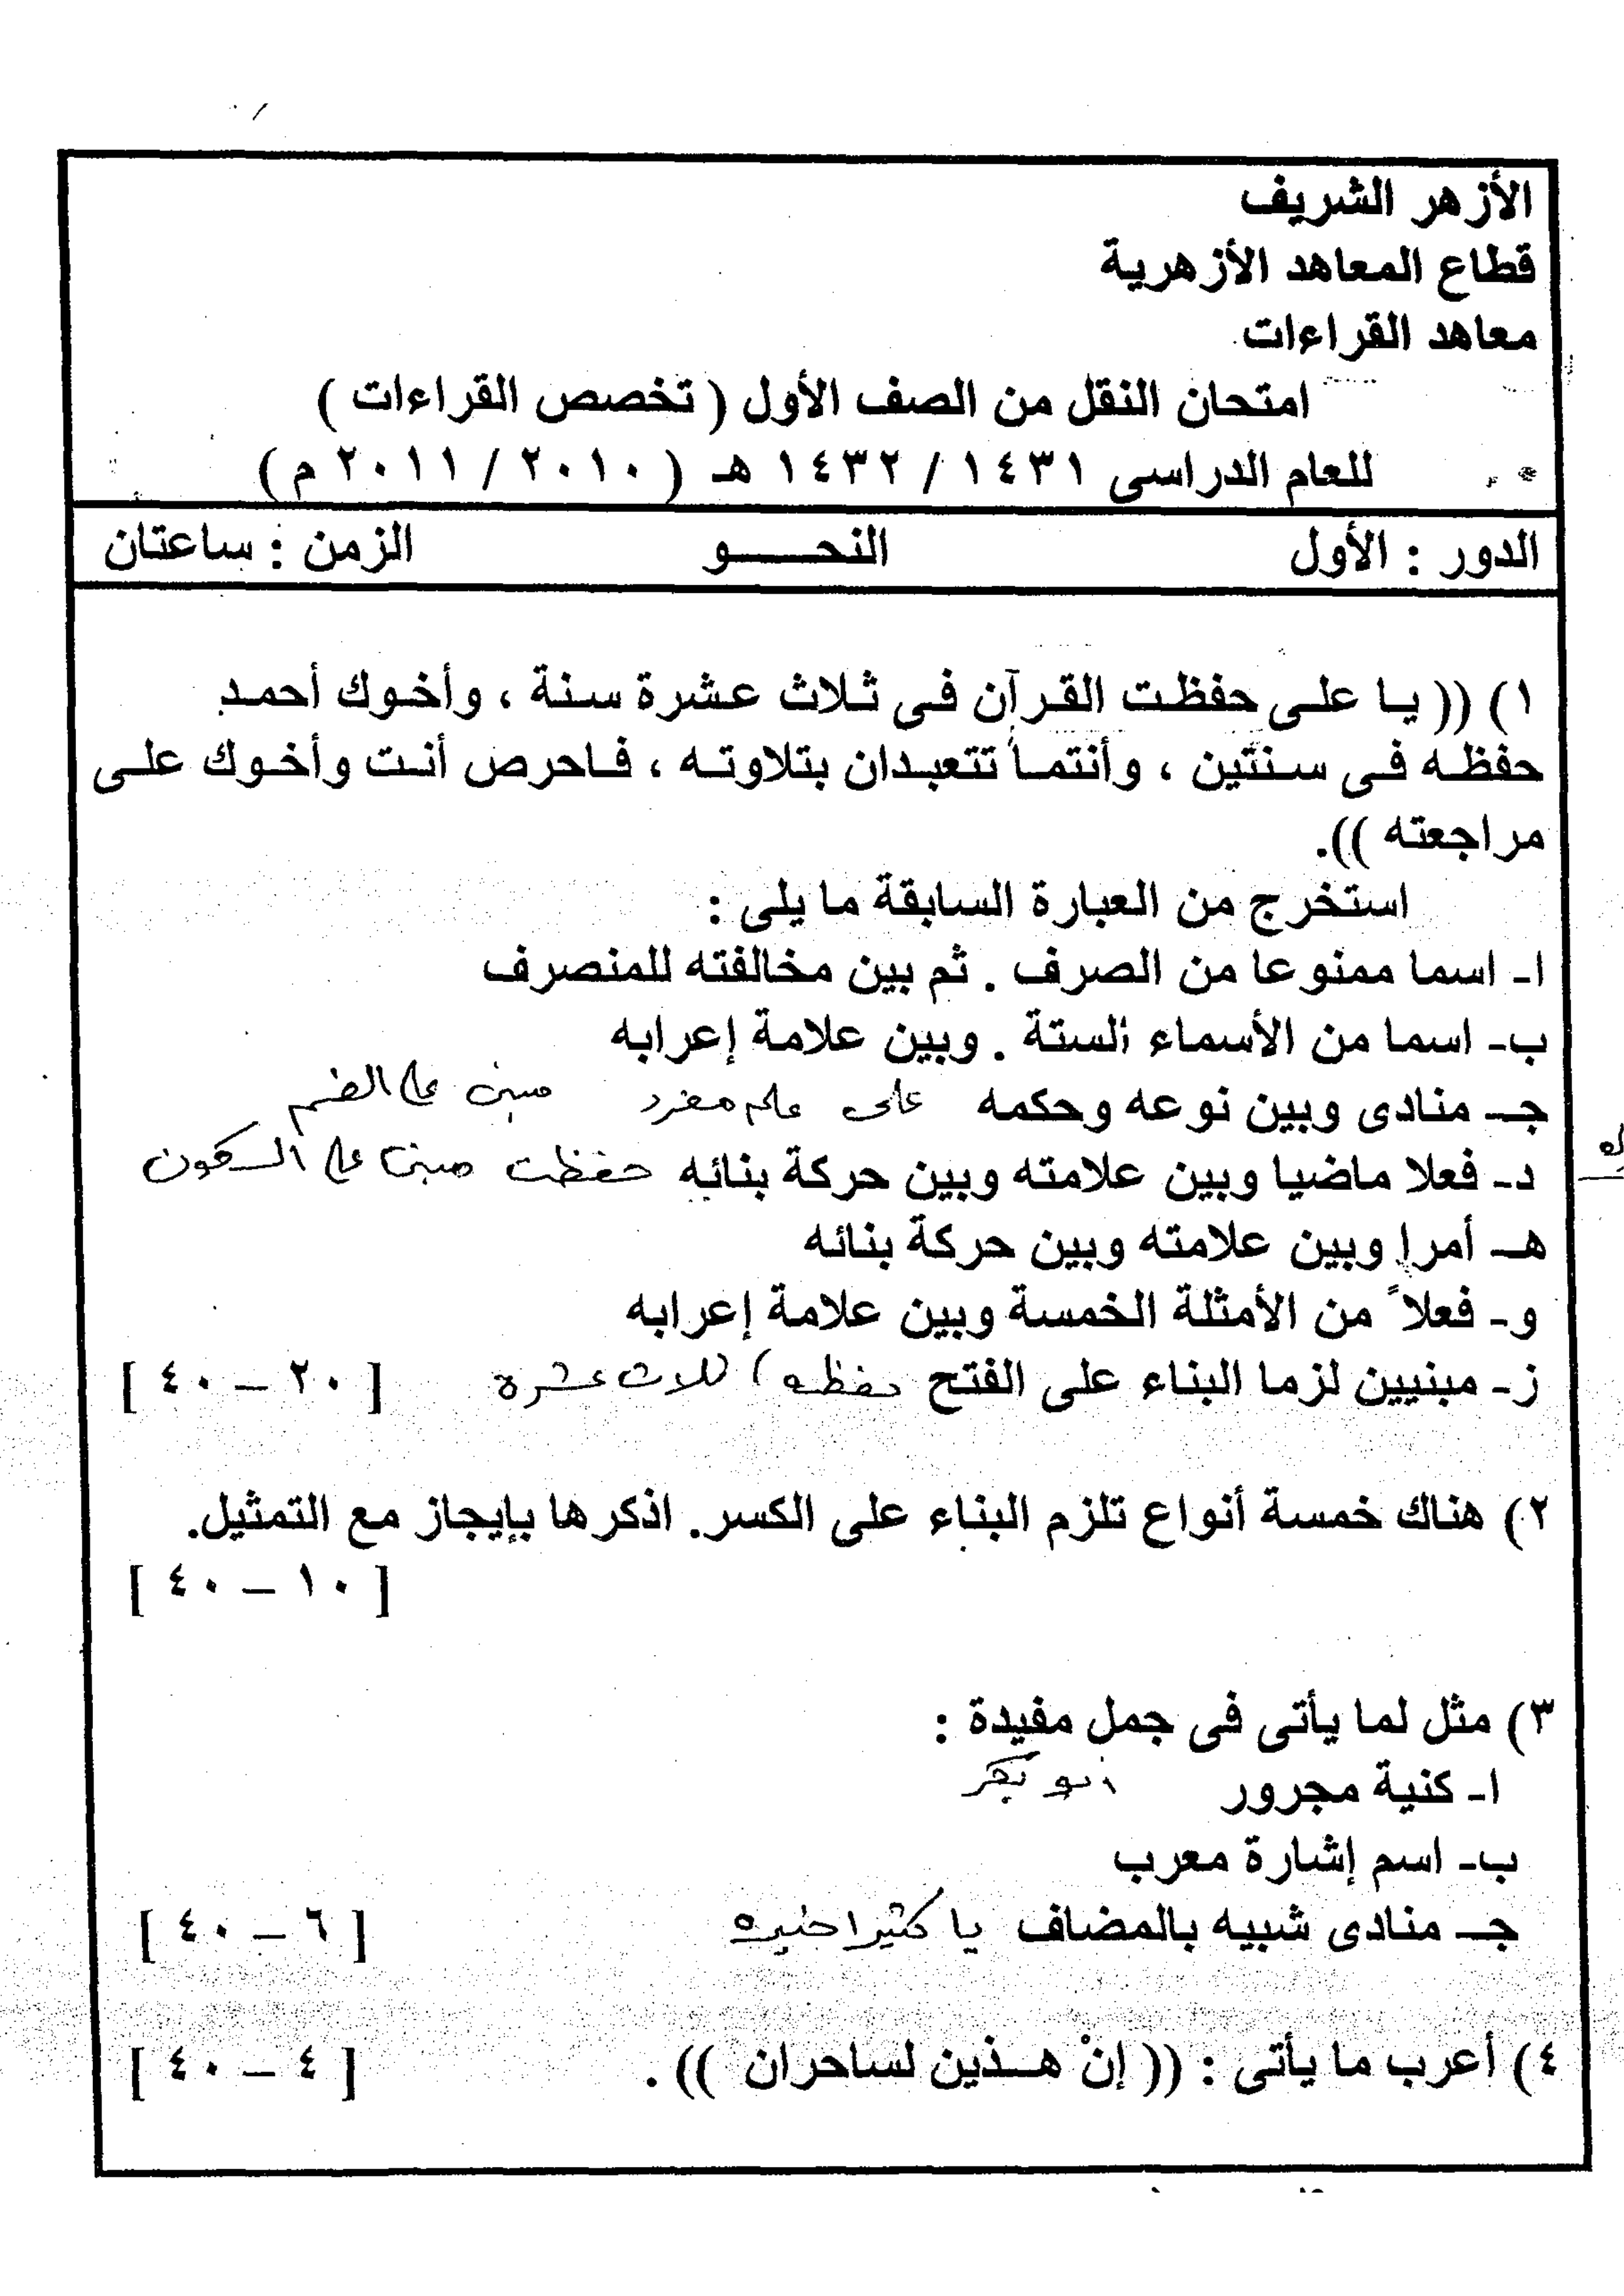 الأزهر الشريف
قطاع المعاهد الأزهرية
معاهد القراءات
امتحان النقل من الصف الأول ( تخصص القراءات )
للعام الدراسى ١٤٣١ / ١٤٣٢ هـ ( ٢٠١٠ / ٢٠١١ م )
الدور : الأول النحـــو الزمن : ساعتان
١) (( يا على حفظت القرآن فى ثلاث عشرة سنة ، وأخوك أحمد
حفظه فى سنتين ، وأنتما تتعبدان بتلاوته ، فاحرص أنت وأخوك على
مراجعته )).
استخرج من العبارة السابقة ما يلى :
ا- اسما ممنوعا من الصرف . ثم بين مخالفته للمنصرف
ب- اسما من الأسماء الستة . وبين علامة إعرابه
جـ- منادى وبين نوعه وحكمه على علم مفرد مبنى على الضم
د- فعلا ماضيا وبين علامته وبين حركة بنائه حفظت مبنى على السكون
هـ- أمرا وبين علامته وبين حركة بنائه
و- فعلاً من الأمثلة الخمسة وبين علامة إعرابه
ز- مبنيين لزما البناء على الفتح حفظه ) ثلاث عشرة [ ٢٠ – ٤٠ ]
٢) هناك خمسة أنواع تلزم البناء على الكسر. اذكرها بإيجاز مع التمثيل.
[ ١٠ – ٤٠ ]
٣) مثل لما يأتى فى جمل مفيدة :
ا- كنية مجرور ابو بكر
ب- اسم إشارة معرب
جـ- منادى شبيه بالمضاف يا كثيرا خيره [ ٦ – ٤٠ ]
٤) أعرب ما يأتى : (( إنْ هـذين لساحران )) . [ ٤ – ٤٠ ]